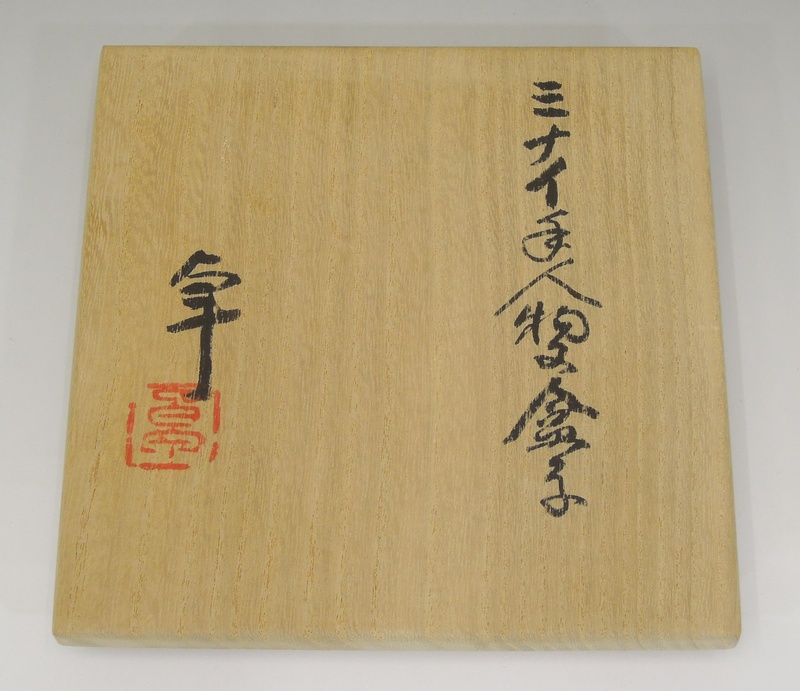 ミナイ手人物文盒子
卓